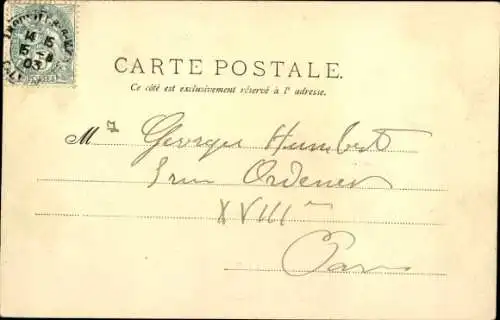 14 15
15 - 8
03
CARTE POSTALE.
Ce côté est exclusivement réservé à l'adresse.
M r Georges Humbert
3 rue Ordener
XVIII me
Paris